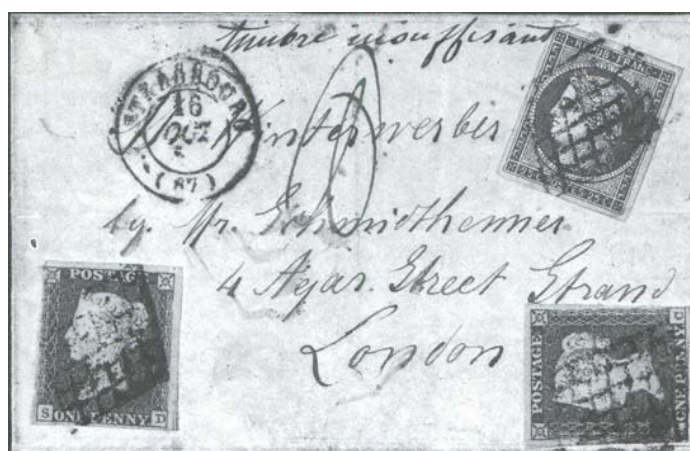 timbre insuffisant
STRASBOURG
16
OCT
(67)
REPUB. FRANC.
25 C
25 C
Winterwerber
by. Mr. Schmidthenner
4 Agar Street Strand
London
POSTAGE
S
ONE PENNY
D
POSTAGE
ONE PENNY
C